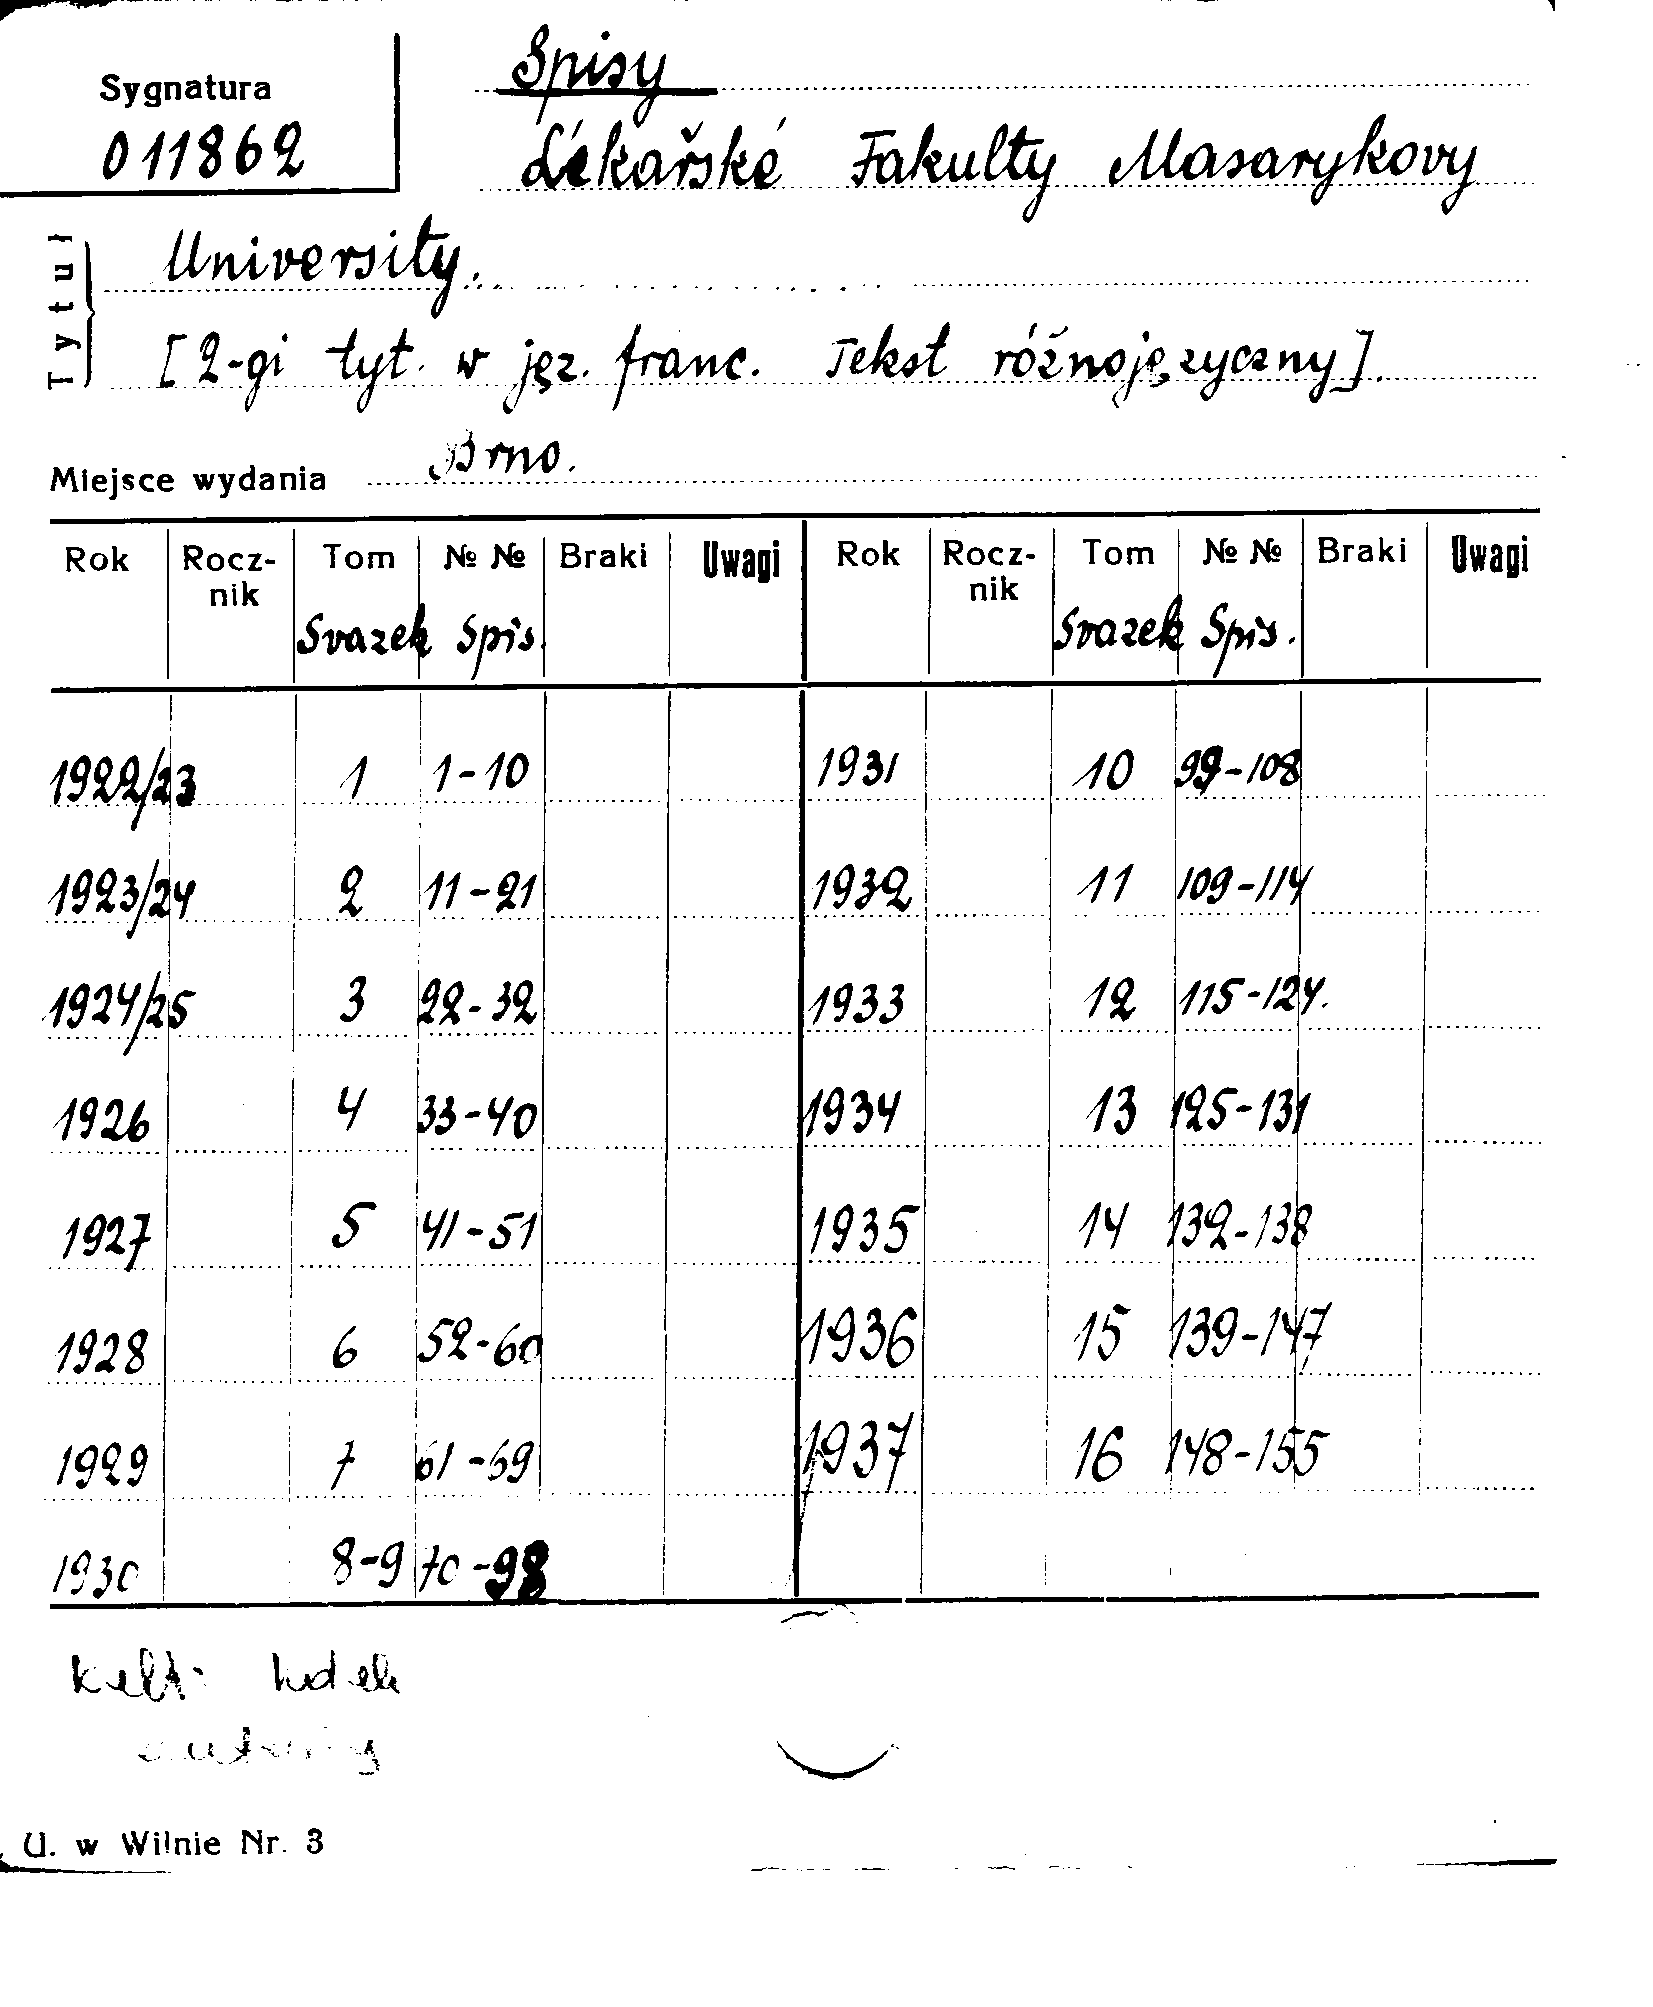 Spisy
Sygnatura
011862
Lékařské Fakulty Masarykovy
Tytuł
University.
[2-gi tyt. w jęz. franc. Tekst różnojęzyczny].
Miejsce wydania Brno.
Rok Rocz-nik Tom №№ Braki Uwagi Rok Rocz-nik Tom №№ Braki Uwagi
Svazek Spis. Svazek Spis.
1922/23 1 1-10 1931 10 99-108
1923/24 2 11-21 1932 11 109-114
1924/25 3 22-32 1933 12 115-124.
1926 4 33-40 1934 13 125-131
1927 5 41-51 1935 14 132-138
1928 6 52-60 1936 15 139-147
1929 7 61-69 1937 16 148-155
1930 8-9 70-98
U. w Wilnie Nr. 3